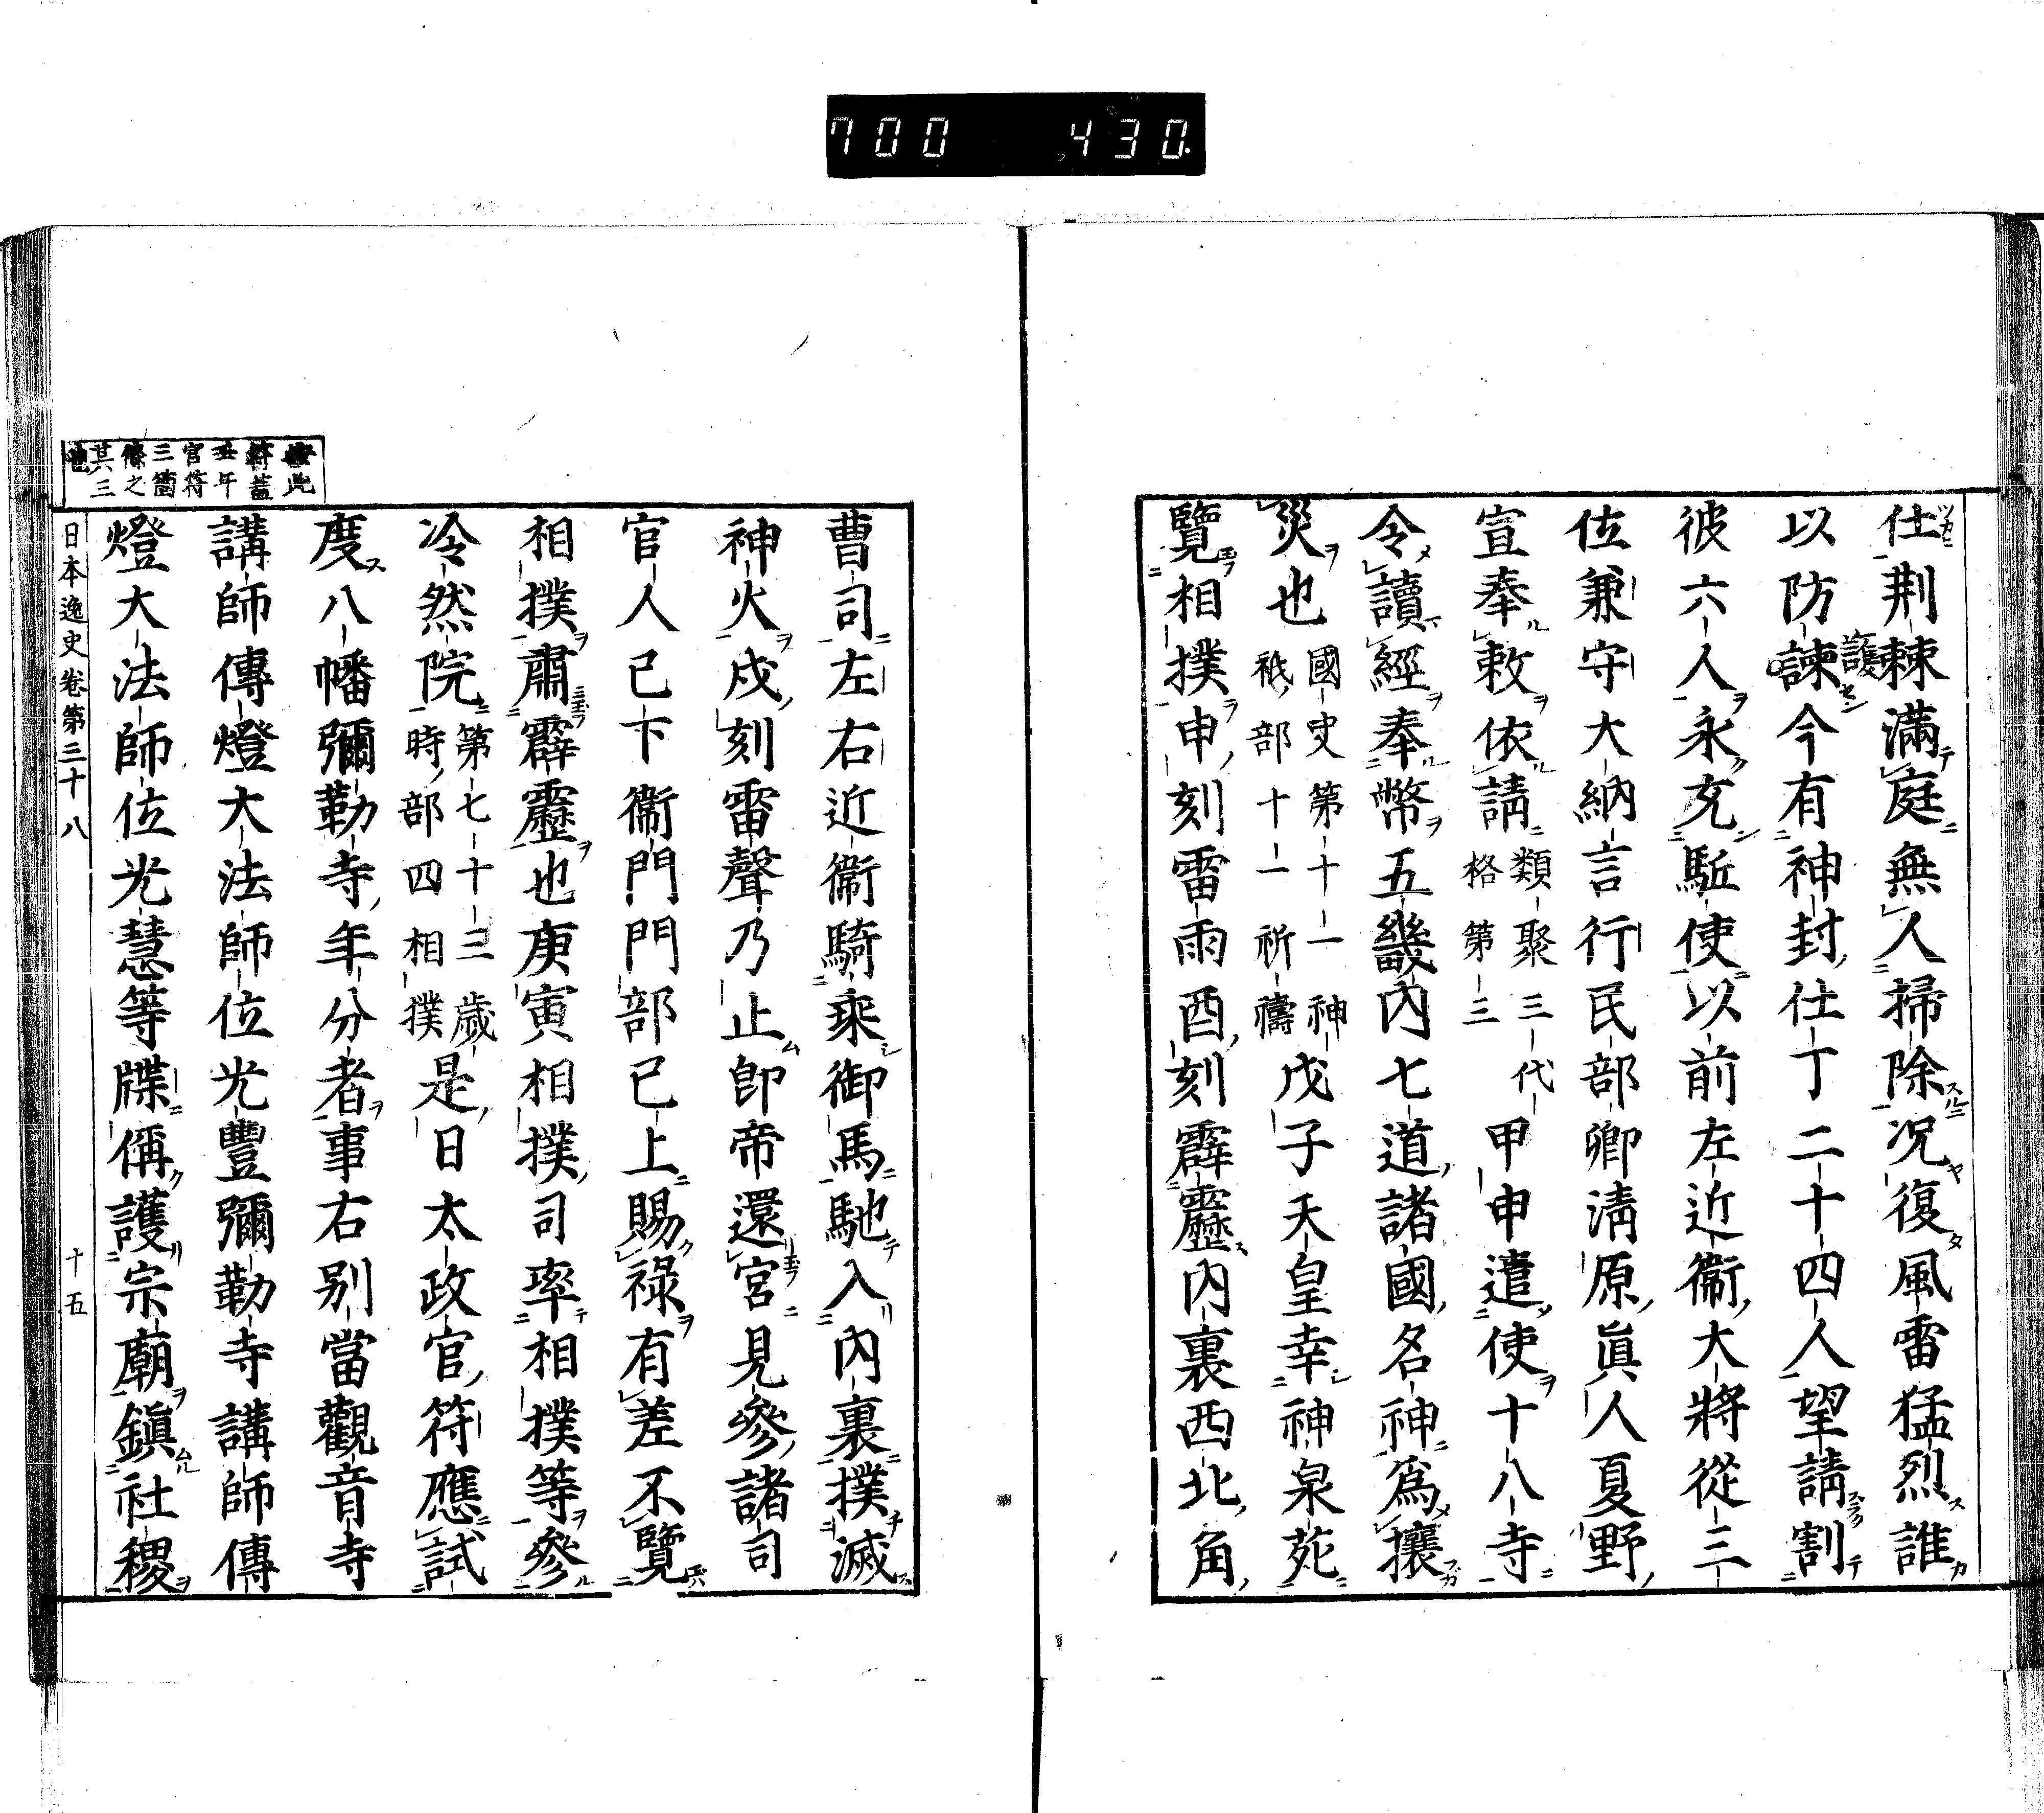 700 430
仕荆棘滿庭無人掃除况復風雷猛烈誰
以防諫今有神封仕丁二十四人望請割
護
彼六人永充駈使以前左近衞大將從三
位兼守大納言行民部卿淸原眞人夏野
宣奉敕依請 類聚三代格第三 甲申遣使十八寺
令讀經奉幣五畿內七道諸國名神爲攘
災也 國史第十一神祇部十一祈禱 戊子天皇幸神泉苑
覽相撲申刻雷雨酉刻霹靂內裏西北角
曹司左右近衞騎乘御馬馳入內裏撲滅
神火戍刻雷聲乃止卽帝還宮見參諸司
官人已下衞門門部已上賜祿有差不覽
相撲肅霹靂也庚寅相撲司率相撲等參
冷然院 第七十三歲時部四相撲 是日太政官符應試
度八幡彌勒寺年分者事右别當觀音寺
講師傳燈大法師位光豐彌勒寺講師傳
燈大法師位光慧等牒偁護宗廟鎭社稷
此
符蓋
年
官符
三箇
條之
其三
也
日本逸史卷第三十八 十五